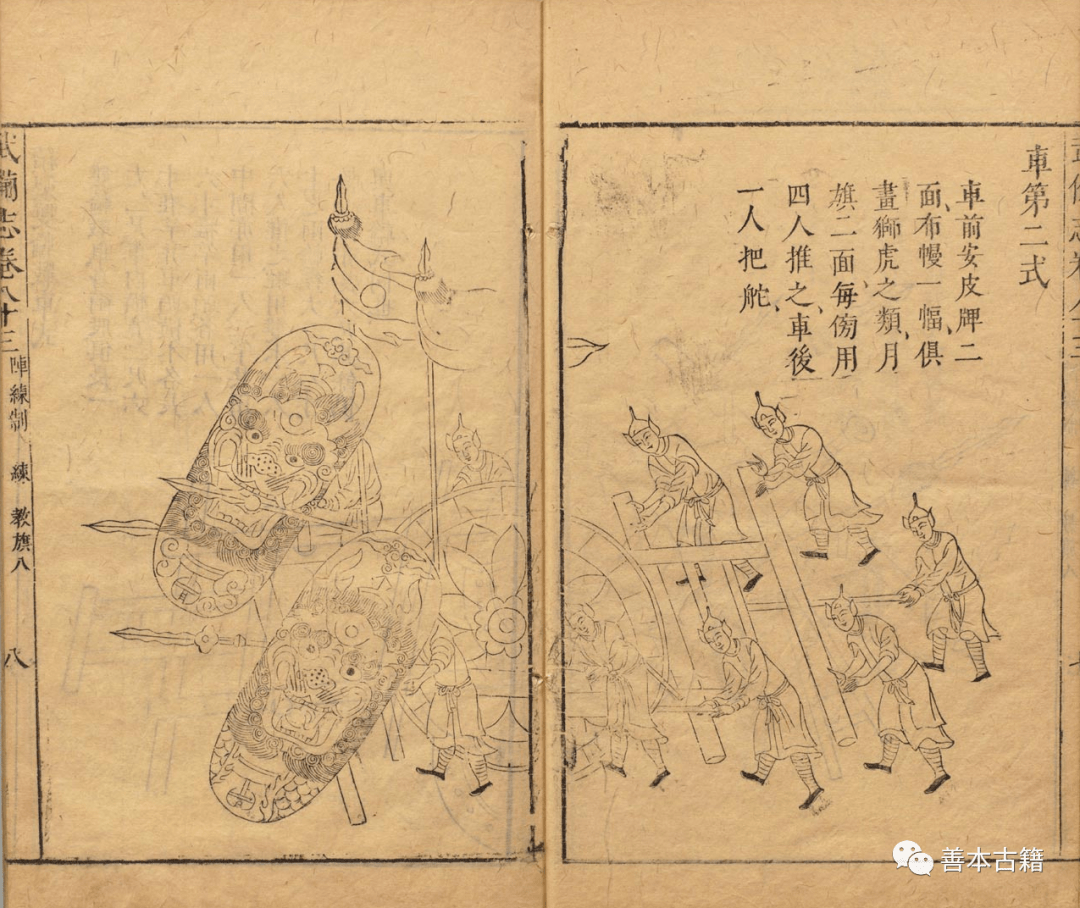 車第二式
車前安皮牌二
面布幔一幅俱
畫獅虎之類月
旗二面每傍用
四人推之車後
一人把舵
武備志卷八十三 陣練制 練 教旗八 八
善本古籍